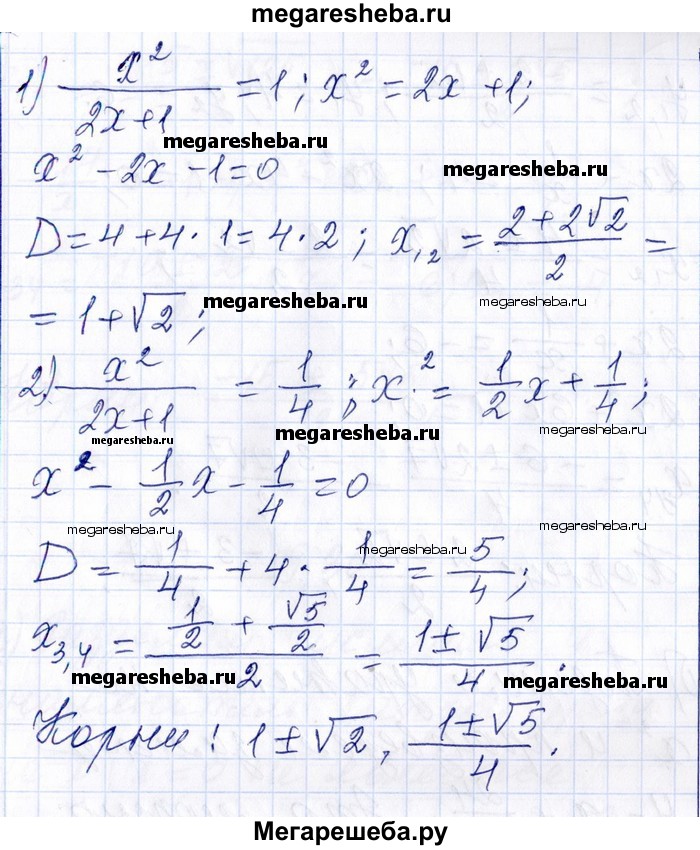 megaresheba.ru
megaresheba.ru
1) x²/(2x+1) = 1; x² = 2x + 1;
megaresheba.ru
x² - 2x - 1 = 0 megaresheba.ru
D = 4 + 4 · 1 = 4 · 2; x₁,₂ = (2 + 2√2)/2 =
megaresheba.ru megaresheba.ru
= 1 + √2;
2) x²/(2x+1) = 1/4; x² = 1/2 x + 1/4;
megaresheba.ru megaresheba.ru megaresheba.ru
x² - 1/2 x - 1/4 = 0
megaresheba.ru megaresheba.ru megaresheba.ru
D = 1/4 + 4 · 1/4 = 5/4;
x₃,₄ = (1/2 + √5/2)/2 = (1 ± √5)/4.
megaresheba.ru megaresheba.ru
Корни: 1 ± √2, (1 ± √5)/4.
Мегарешеба.ру